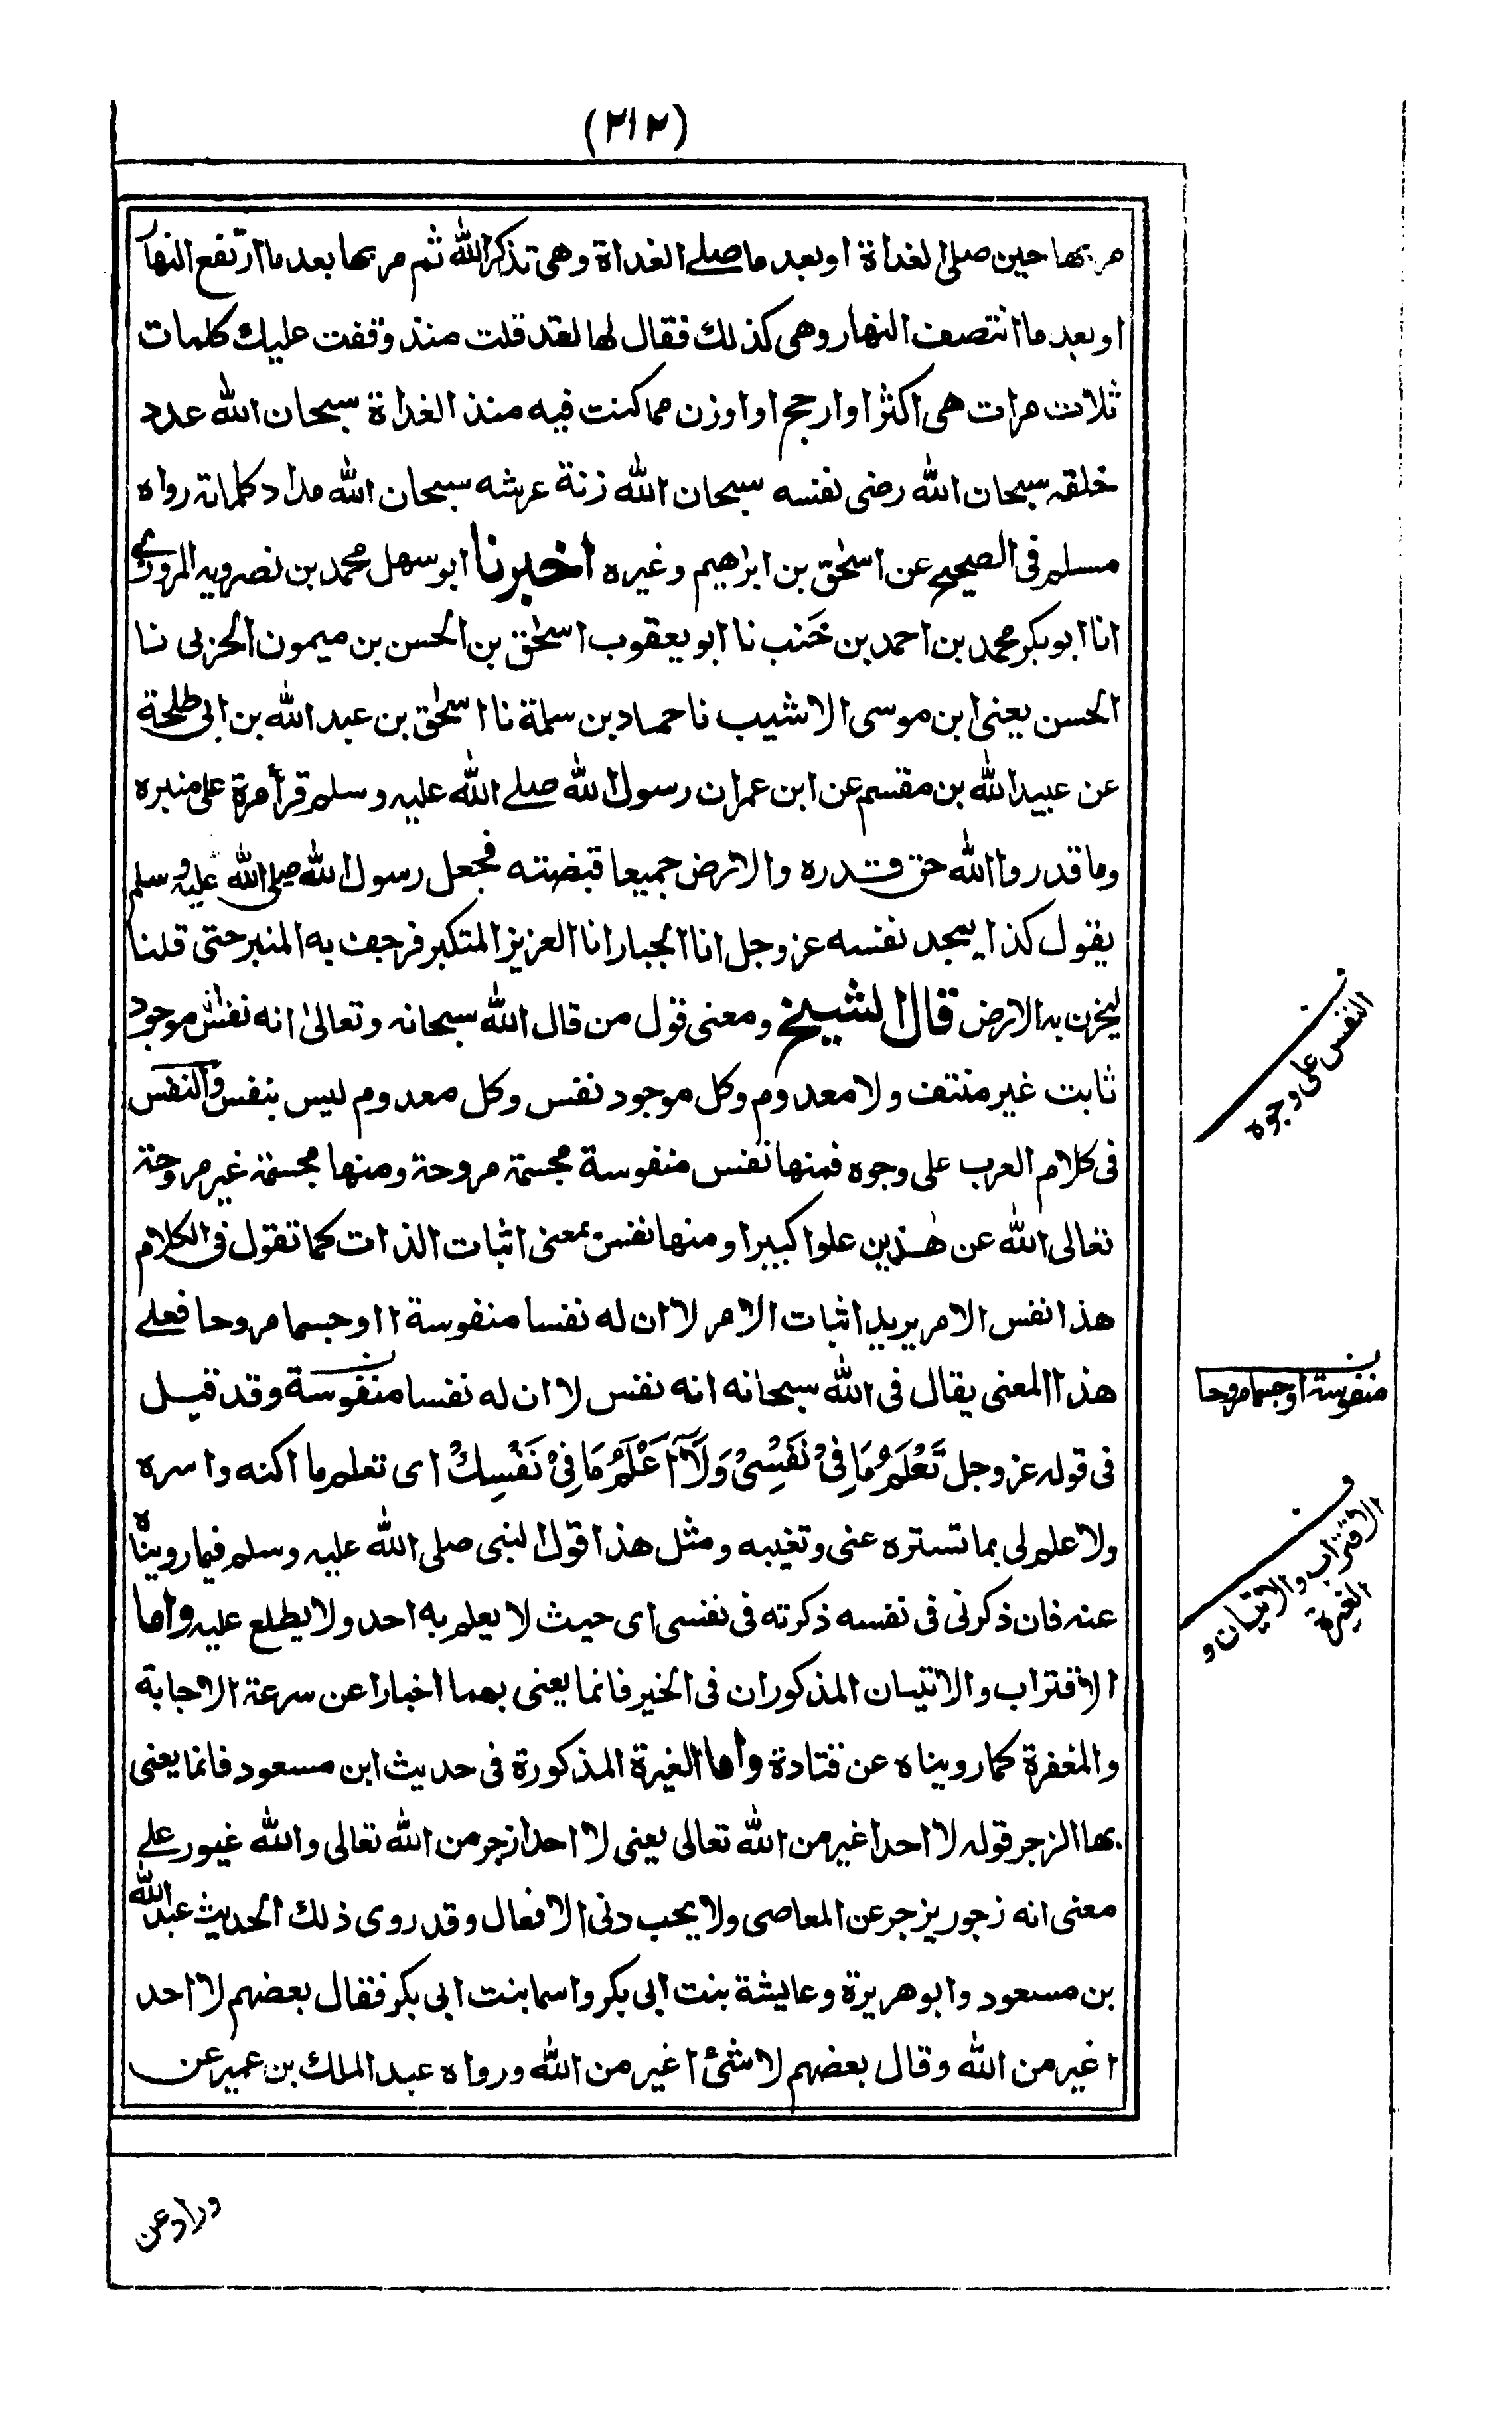 (٢١٢)
مر بها حين صلى الغداة او بعد ما صلے الغداة وهى تذكر الله ثم مر بها بعد ما ارتفع النهار
او بعد ما انتصف النهار وهى كذلك فقال لها لقد قلت منذ وقفت عليك كلمات
ثلاث مرات هى اكثر او ارجح او اوزن مما كنت فيه منذ الغداة سبحان الله عدد
خلقه سبحان الله رضى نفسه سبحان الله زنة عرشه سبحان الله مداد كلماته رواه
مسلم فى الصحيح عن اسحٰق بن ابراهيم وغيره اخبرنا ابو سهل محمد بن نصرويه المروزى
انا ابو بكر محمد بن احمد بن خَنب نا ابو يعقوب اسحٰق بن الحسن بن ميمون الحربى نا
الحسن يعنى ابن موسى الاشيب نا حماد بن سلمة نا اسحٰق بن عبد الله بن ابى طلحة
عن عبيد الله بن مقسم عن ابن عمر ان رسول الله صلے الله عليه وسلم قرأ مرة على منبره
وما قدروا الله حق قدره والارض جميعا قبضته فجعل رسول الله صلى الله عليه وسلم
يقول كذا يمجد نفسه عز وجل انا الجبار انا العزيز المتكبر فرجف به المنبر حتى قلنا
ليخرن به الارض قال الشيخ ومعنى قول من قال الله سبحانه وتعالىٰ انه نفس انه موجود
ثابت غير منتف ولا معدوم وكل موجود نفس وكل معدوم ليس بنفس والنفس
فى كلام العرب على وجوه فمنها نفس منفوسة مجسمة مروحة ومنها مجسمة غير مروحة
تعالى الله عن هٰذين علوا كبيرا ومنها نفس بمعنى اثبات الذات كما تقول فى الكلام
هذا نفس الامر يريد اثبات الامر لا ان له نفسا منفوسة ا او جسما مروحا فعلے
هذا المعنى يقال فى الله سبحانه انه نفس لا ان له نفسا منفوسة وقد قيل
فى قوله عز وجل تَعْلَمُ مَا فِىْ نَفْسِىْ وَلَآ اَعْلَمُ مَا فِىْ نَفْسِكْ اى تعلم ما اكنه واسره
ولا علم لى بما تستره عنى وتغيبه ومثل هذا قول النبى صلى الله عليه وسلم فيما رويناه
عنه فان ذكرنى فى نفسه ذكرته فى نفسى اى حيث لا يعلم به احد ولا يطلع عليه واما
الاقتراب والاتيان المذكوران فى الخبر فانما يعنى بهما اخبارا عن سرعة الاجابة
والمغفرة كما رويناه عن قتادة واما الغيرة المذكورة فى حديث ابن مسعود فانما يعنى
بها الزجر قوله لا احد اغير من الله تعالى يعنى لا احد ازجر من الله تعالى والله غيور علے
معنى انه زجور يزجر عن المعاصى ولا يحب دنى الافعال وقد روى ذلك الحديث عبد الله
بن مسعود وابو هريرة وعايشة بنت ابى بكر واسما بنت ابى بكر فقال بعضهم لا احد
اغير من الله وقال بعضهم لا شئ اغير من الله ورواه عبد الملك بن عمير عن
النفس على وجوه
منفوسة او جسما مروحا
الاقتراب والاتيان و
الغيرة
وراد عن